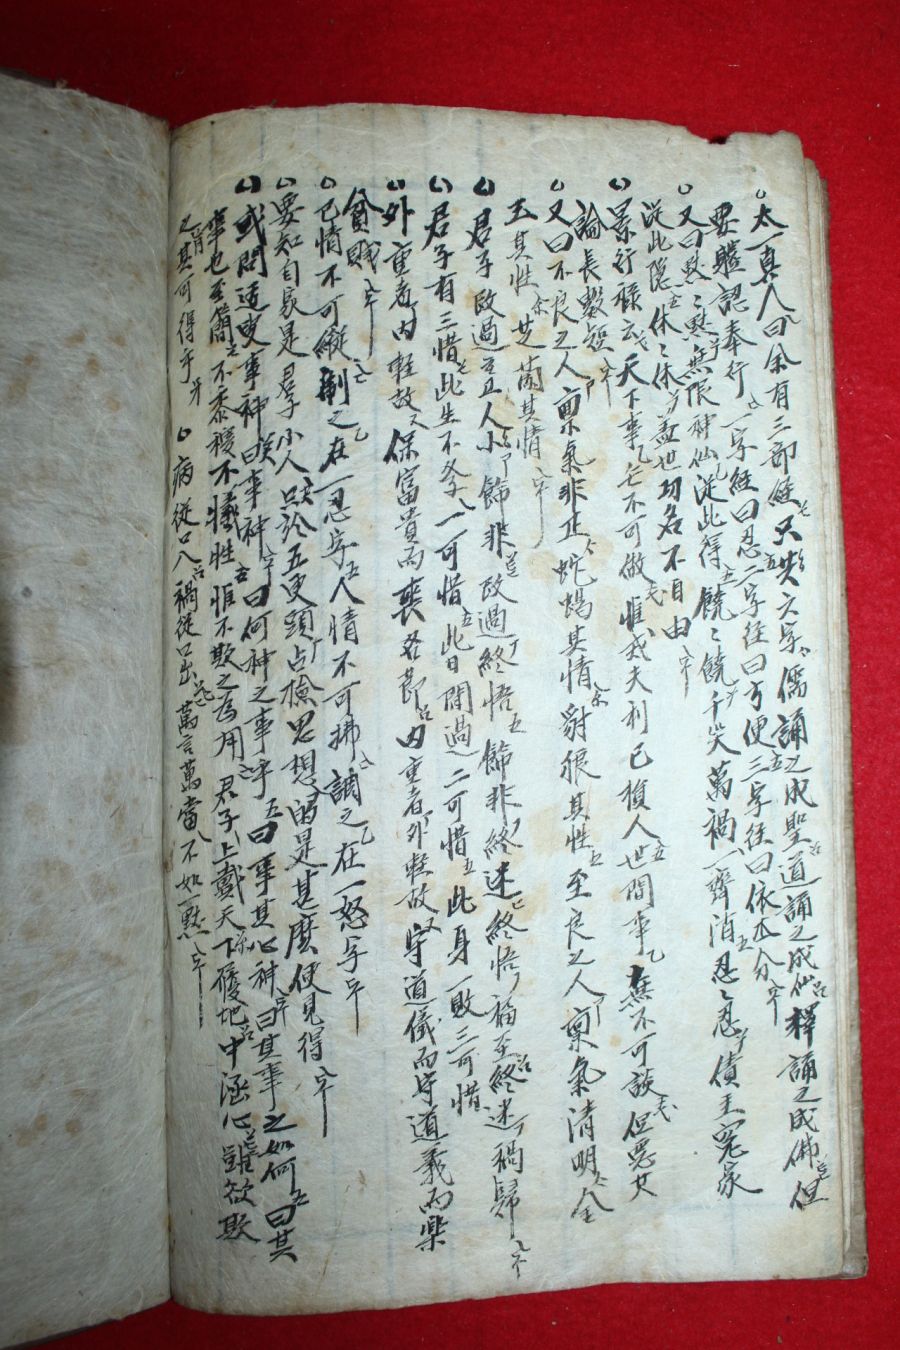 太一眞人曰余有三部經只六字儒誦之成聖道誦之成仙釋誦之成佛但
要軆認奉行一字經曰忍二字經曰方便三字經曰依本分
又曰默〻默無限神仙從此得饒〻饒千災萬禍一齊消忍〻忍債主寃家
從此隱休〻休盖世功名不自由
景行祿云天下事不可做惟我夫利已損人世間事無不可談但惡
論長數短
又曰不良之人稟氣非正蛇蝎其情豺狼其性至良之人稟氣清明金
玉其性芝蘭其情
君子改過小人飾非改過終悟飾非終迷終悟福至終迷禍歸
君子有三惜此生不學一可惜此日閒過二可惜此身一敗三可惜
外重者內輕故保富貴而喪名節內重者外輕故守道義而樂
貧賤
已情不可縱制之在一忍字人情不可拂調之在一怒字
要知自家是君子小人只於五更頭点檢思想的是甚麽便見得
或問逵叟事神曰事神曰何神之事乎曰事其心神曰其事之如何曰其
事也至簡不黍稷不犧牲惟不欺之為用君子上戴天下履地中涵心雖欲欺
之其可得乎 病從口入禍從口出萬言萬當不如一黙